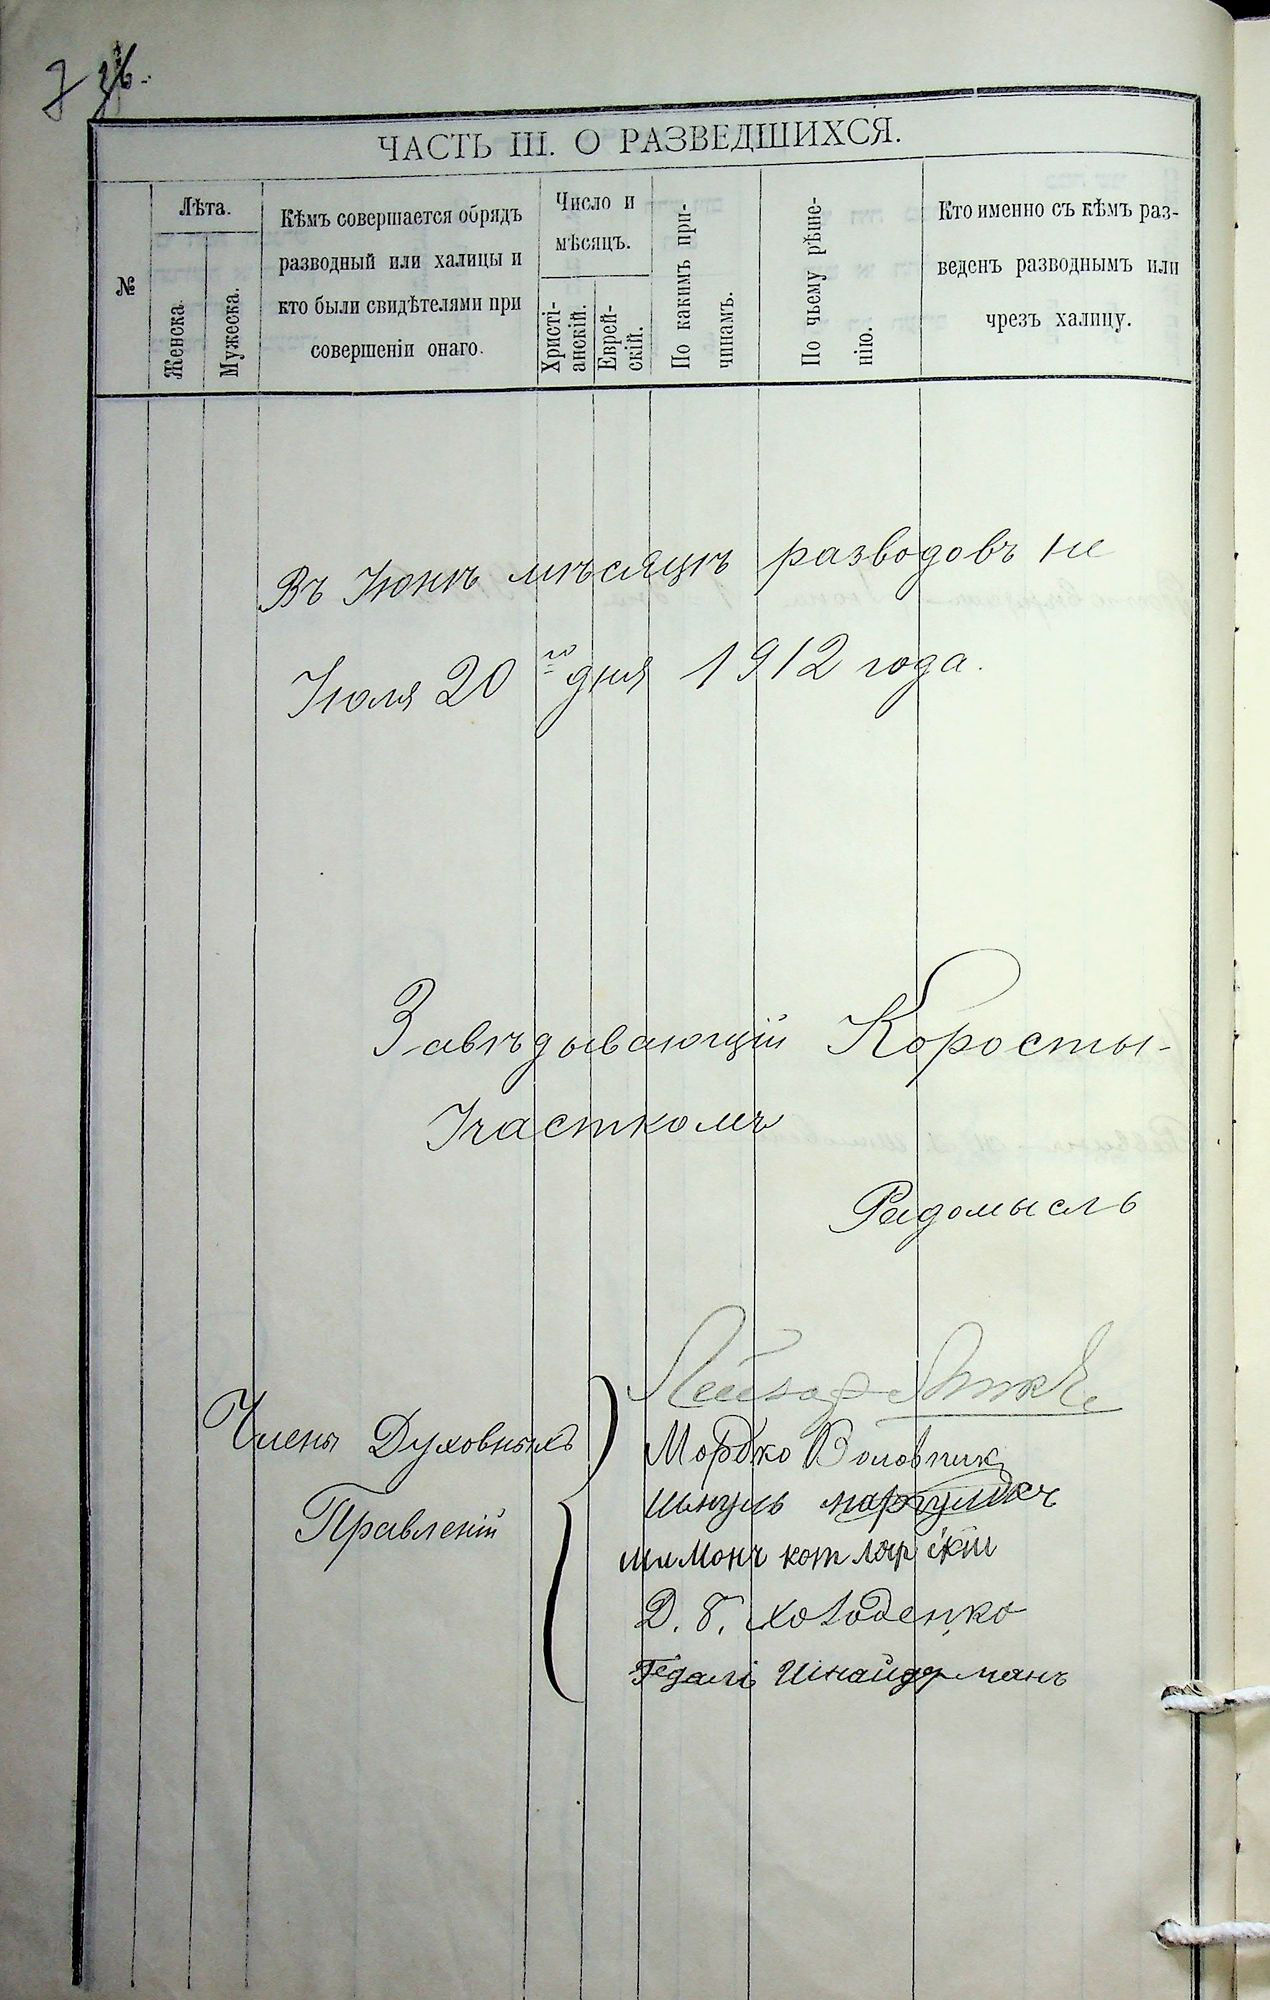 ЧАСТЬ III. О РАЗВЕДШИХСЯ.
№
Лѣта.
Женска.
Мужеска.
Кѣмъ совершается обрядъ
разводный или халицы и
кто были свидѣтелями при
совершеніи онаго.
Число и
мѣсяцъ.
Христі-
анскій.
Еврей-
скій.
По какимъ при-
чинамъ.
По чьему рѣше-
нію.
Кто именно съ кѣмъ раз-
веденъ разводнымъ или
чрезъ халицу.
Въ Іюнѣ мѣсяцѣ разводовъ не
Іюля 20 го дня 1912 года.
Завѣдывающій Коросты-
Участкомъ
Радомысль
Лейзор
Члены Духовныхъ
Правленій
Мордко Воловник
маргулисъ
шимонъ котлярскій
Д. Б. Холоденко
Гедалі Шнайдерманъ